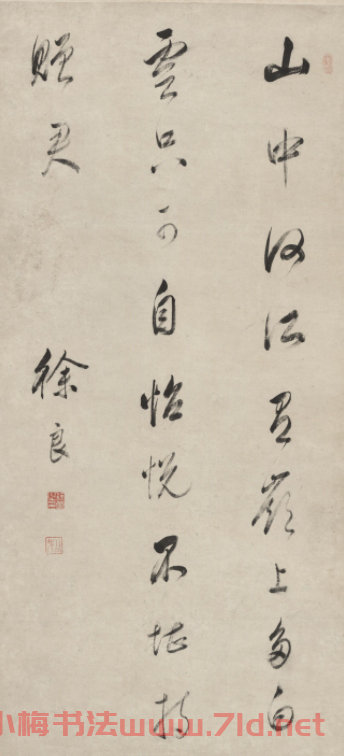 山中何所有嶺上多白
雲只可自怡悅不堪持
贈君
徐良
小梅书法www.7ld.net